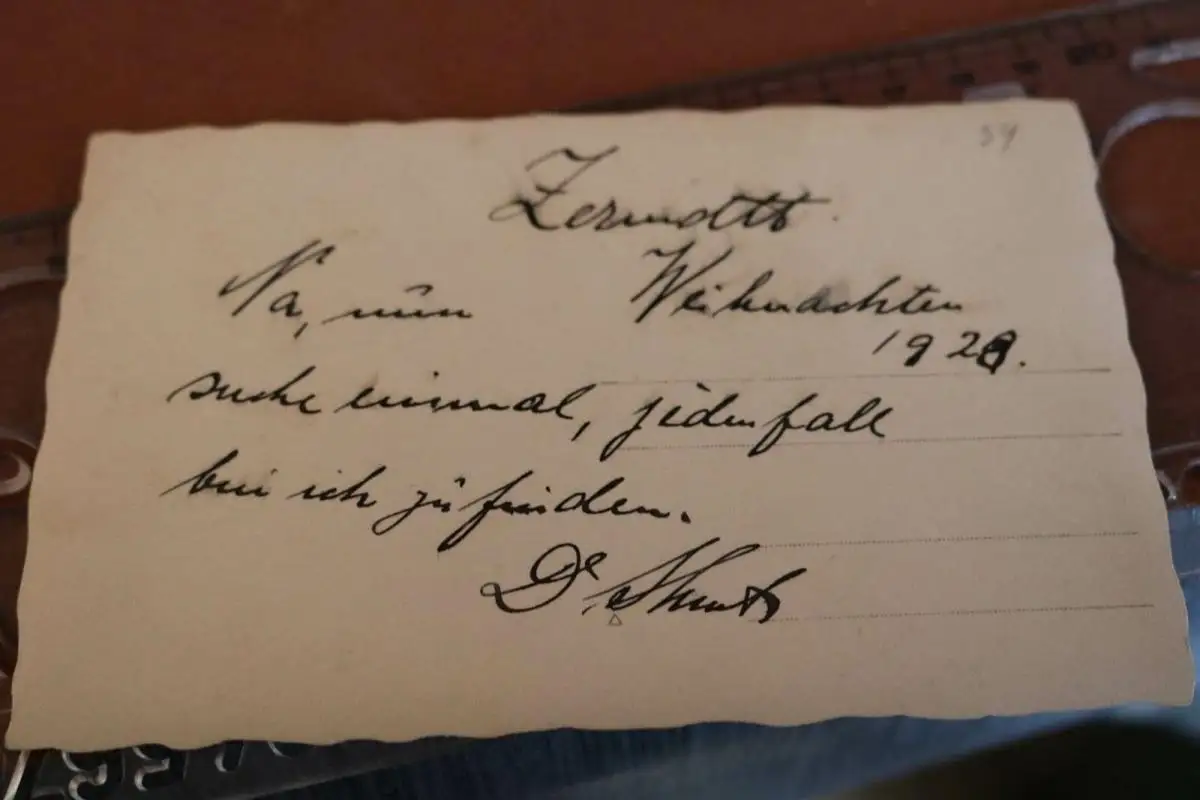 59
Zermatt.
Na, nun Weihnachten
1928.
suche einmal, jedenfall
bin ich zu finden.
Dr